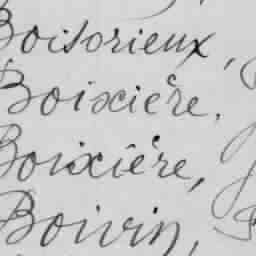 Boisorieux,
Boixière,
Boixière,
Boivin,